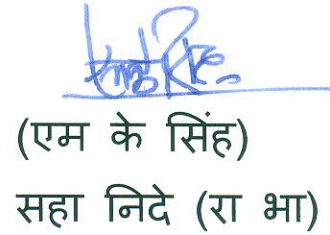 (एम के सिंह)
सहा निदे (रा भा)